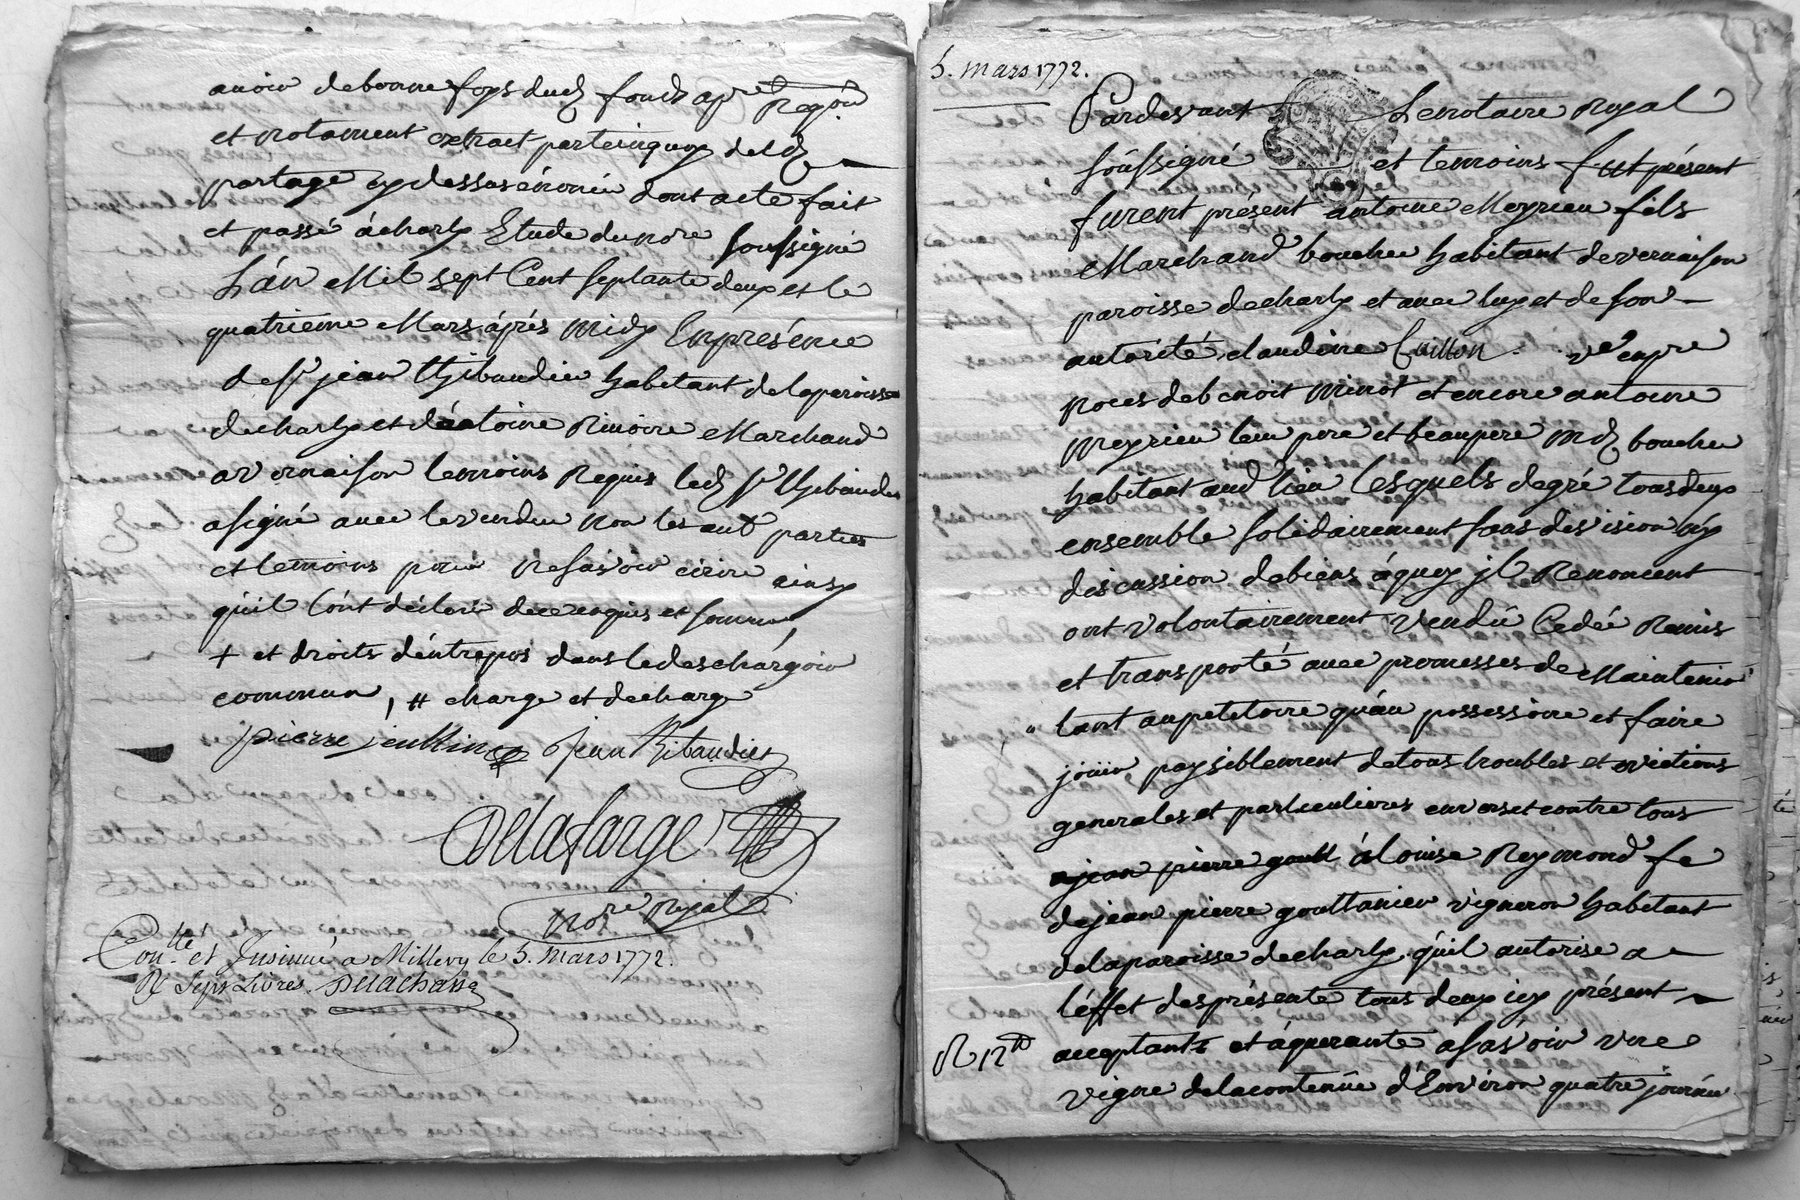 avoir de bonne foys dud fonds apre
et notament extrait parteinquoy delad
partage cy dessus énoncé dont acte fait
et passé à charly Etude du nore soussigné
L'án Mil sept Cent septante deux et le
quatrieme Mars áprés midy Enprésence
de sr jean Thibaudier habitant de la paroisse
de charly et déantoine Rivoire Marchand
a vernaison temoins Requis led sr Thibaudier
a signé avec le vendeur non les autres parties
et temoins pour ne savoir écrire ainsy
qu'il l'ont déclaré de ce enquis et sommé
+ et droits d'éntrepos dans le deschárgoir
commun, # charge et decharge
pierre jean Thibaudier
Delafarge
Nore Royal
Conllé et Insinué a Millery le 5. mars 1772.
R Sept Livres. Delachana
5. mars 1772.
Pardevant Le notaire Royal
soussigné et temoins fut présent
furent présent antoine Meyrieu fils
Marchand boucher habitant de vernaison
paroisse de charly et avec luy et de son
autorité, claudine Cuillon. ve en pre
noces de benoit minot et encore antoine
meyrieu leur pere et beaupere md boucher
habitant aud lieu Lesquels de gré tous deux
ensemble solidairement sans devision ny
discussion de biens á quoy jl Renoncent
ont volontairement vendû Cedé Remis
et transporté avec promesses de Maintenir
tant au petitoire qu'áu possessoire et faire
joüir, paysiblement de tous troubles et evictions
generales et particulieres envers et contre tous
a jean pierre gout à Louise Reymond fe
de jean pierre gouttanier vigneron habitant
de la paroisse de charly, qu'il autorise a
l'éffet des présente tous deux icy présent
acceptants et áquerante á savoir une
R 12tt
vigne de la contenüe d'Environ quatre journée